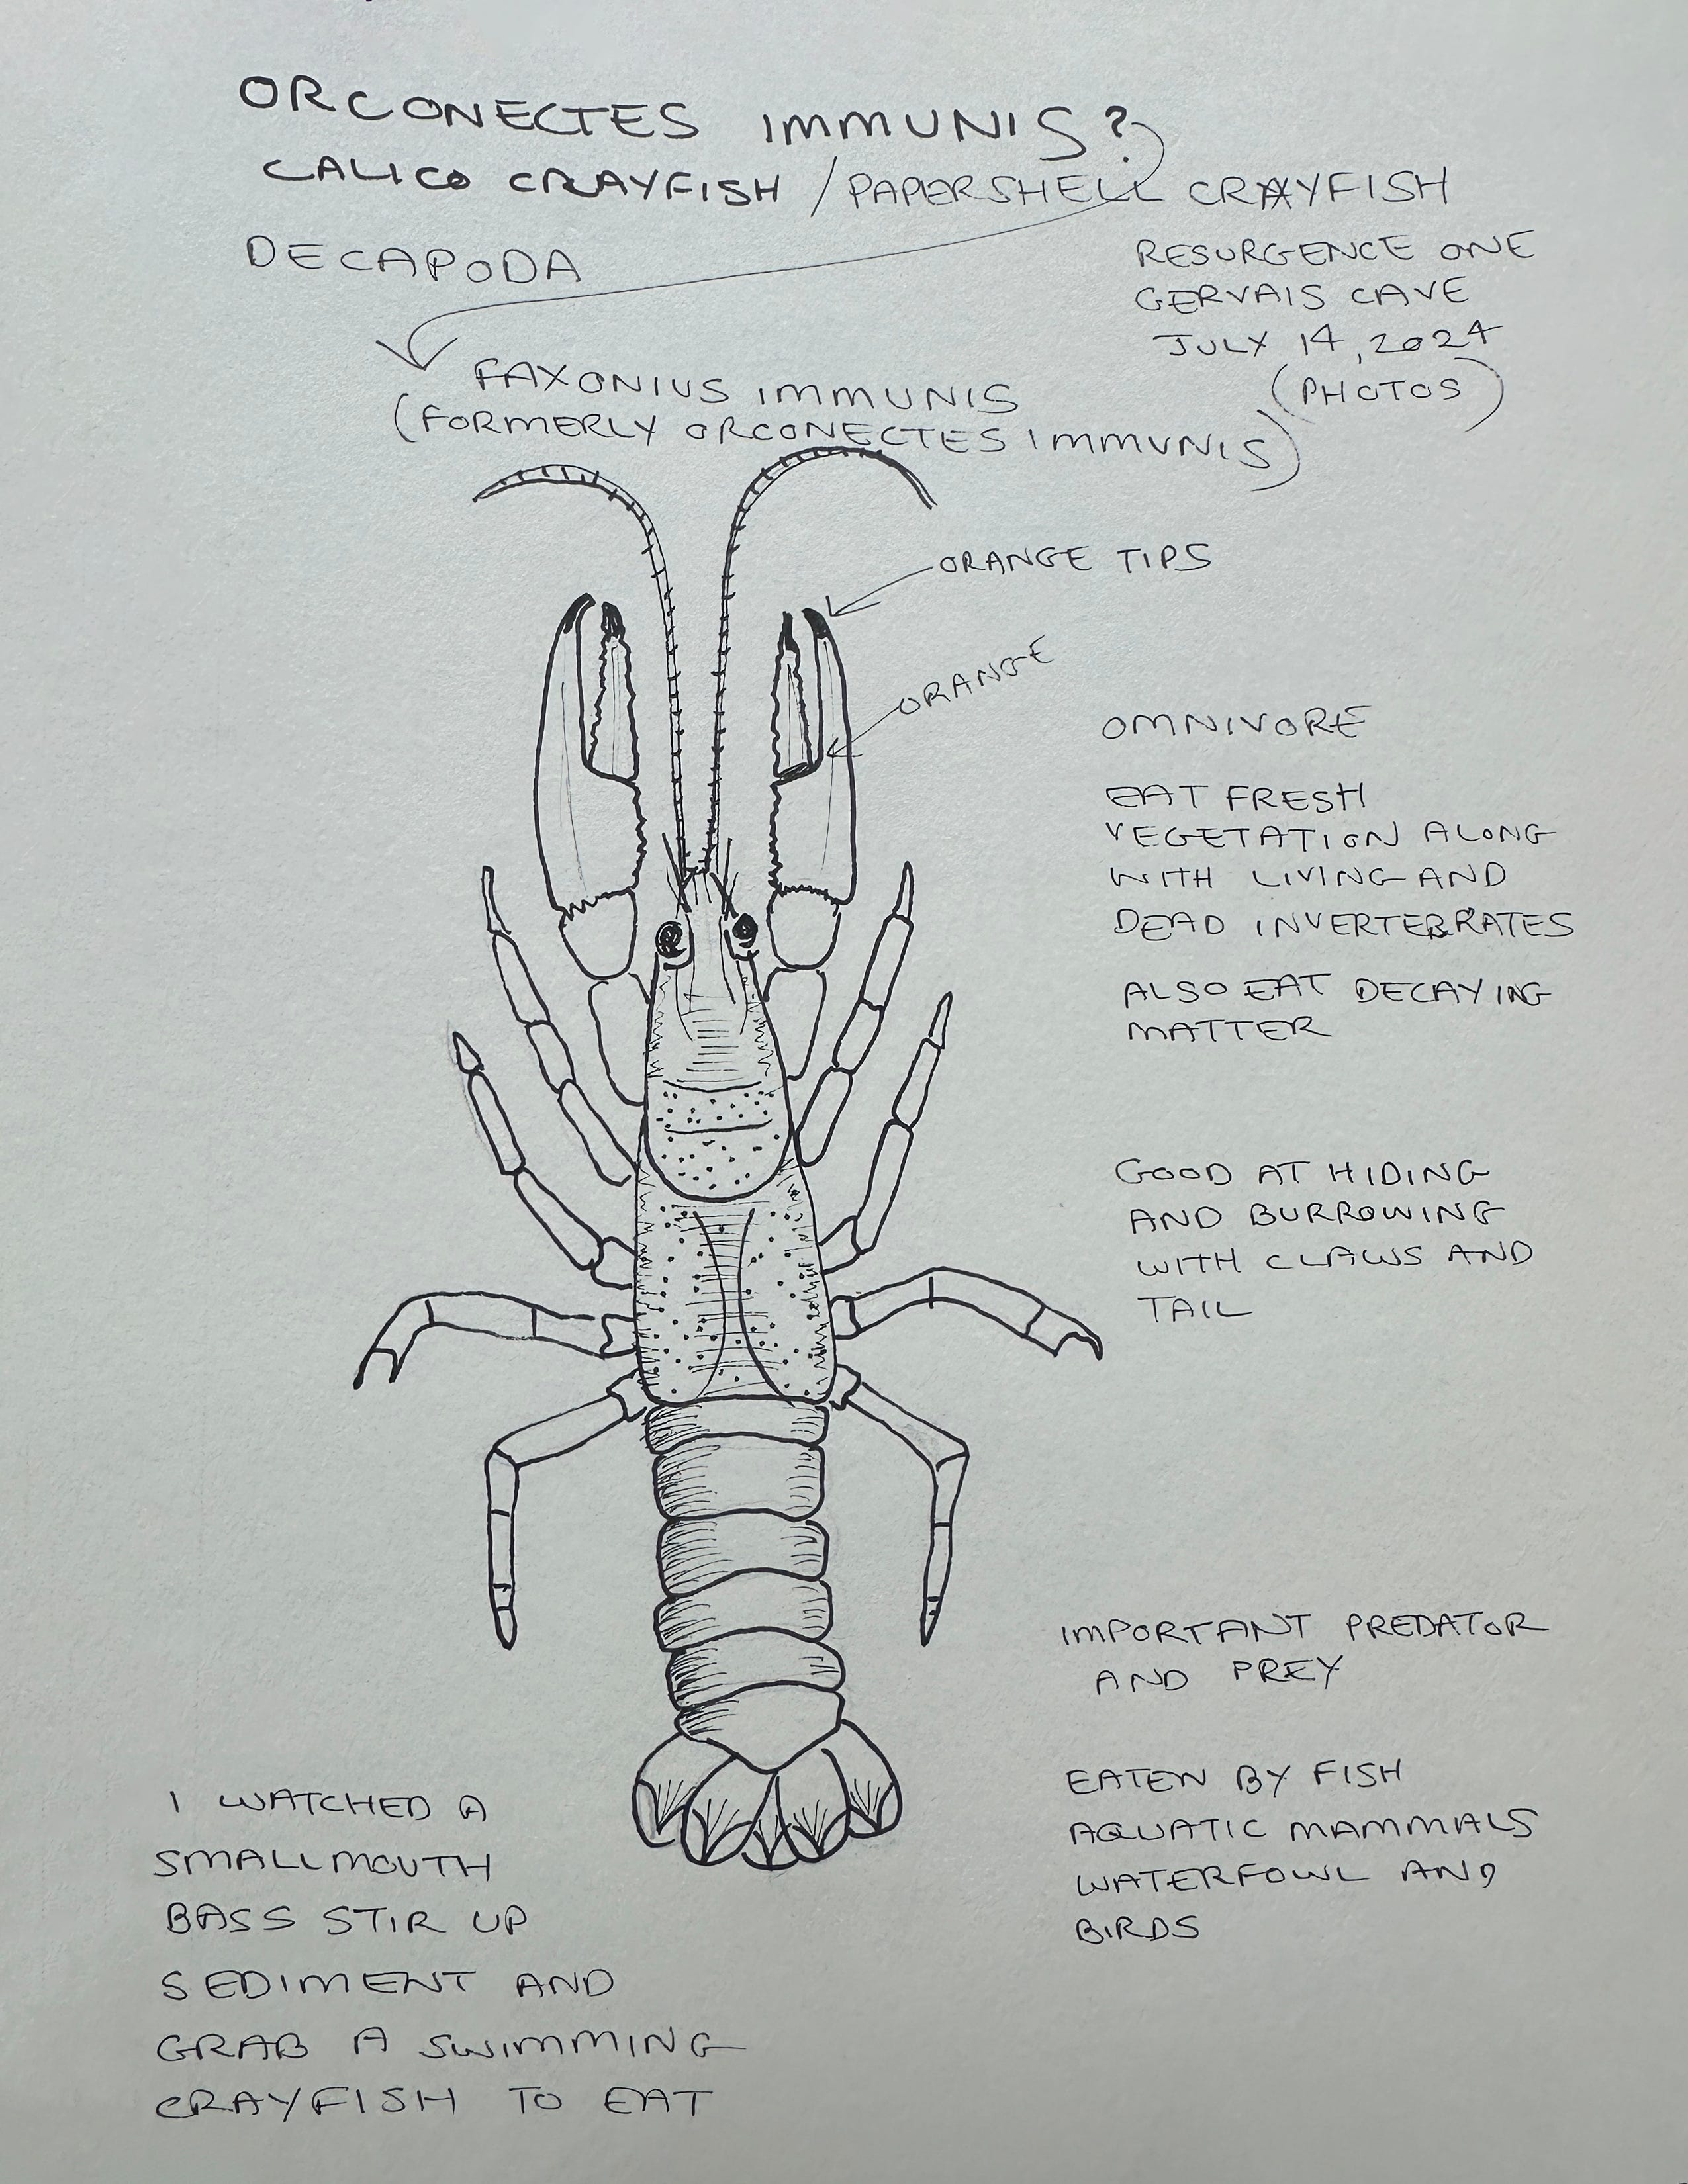 ORCONECTES IMMUNIS?
CALICO CRAYFISH / PAPERSHELL CRAYFISH
DECAPODA
RESURGENCE ONE
GERVAIS CAVE
JULY 14, 2024
(PHOTOS)
FAXONIUS IMMUNIS
(FORMERLY ORCONECTES IMMUNIS)
ORANGE TIPS
ORANGE
OMNIVORE
EAT FRESH
VEGETATION ALONG
WITH LIVING AND
DEAD INVERTEBRATES
ALSO EAT DECAYING
MATTER
GOOD AT HIDING
AND BURROWING
WITH CLAWS AND
TAIL
IMPORTANT PREDATOR
AND PREY
EATEN BY FISH
AQUATIC MAMMALS
WATERFOWL AND
BIRDS
I WATCHED A
SMALLMOUTH
BASS STIR UP
SEDIMENT AND
GRAB A SWIMMING
CRAYFISH TO EAT